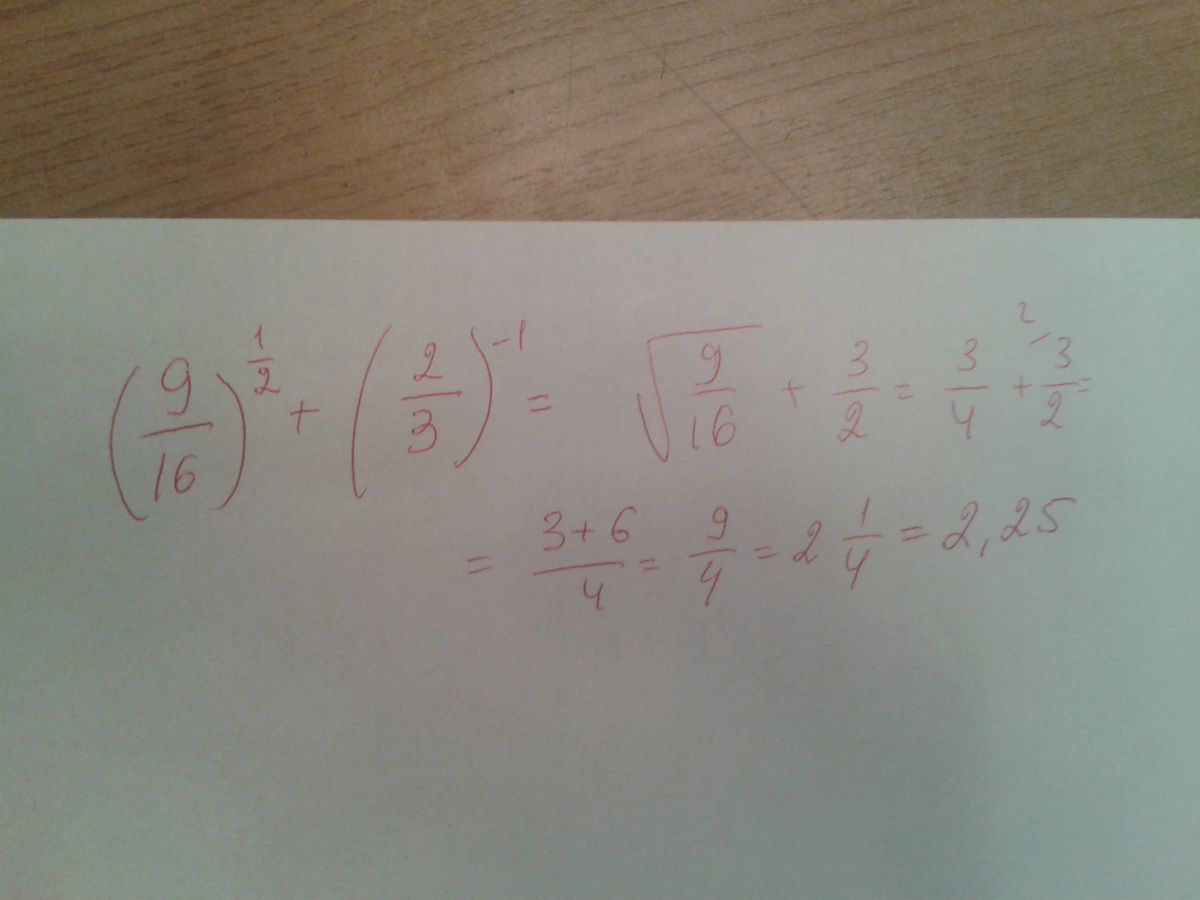 (9/16)^(1/2) + (2/3)^(-1) = √(9/16) + 3/2 = 3/4 + 3/2 ^2 =
= (3+6)/4 = 9/4 = 2 1/4 = 2,25